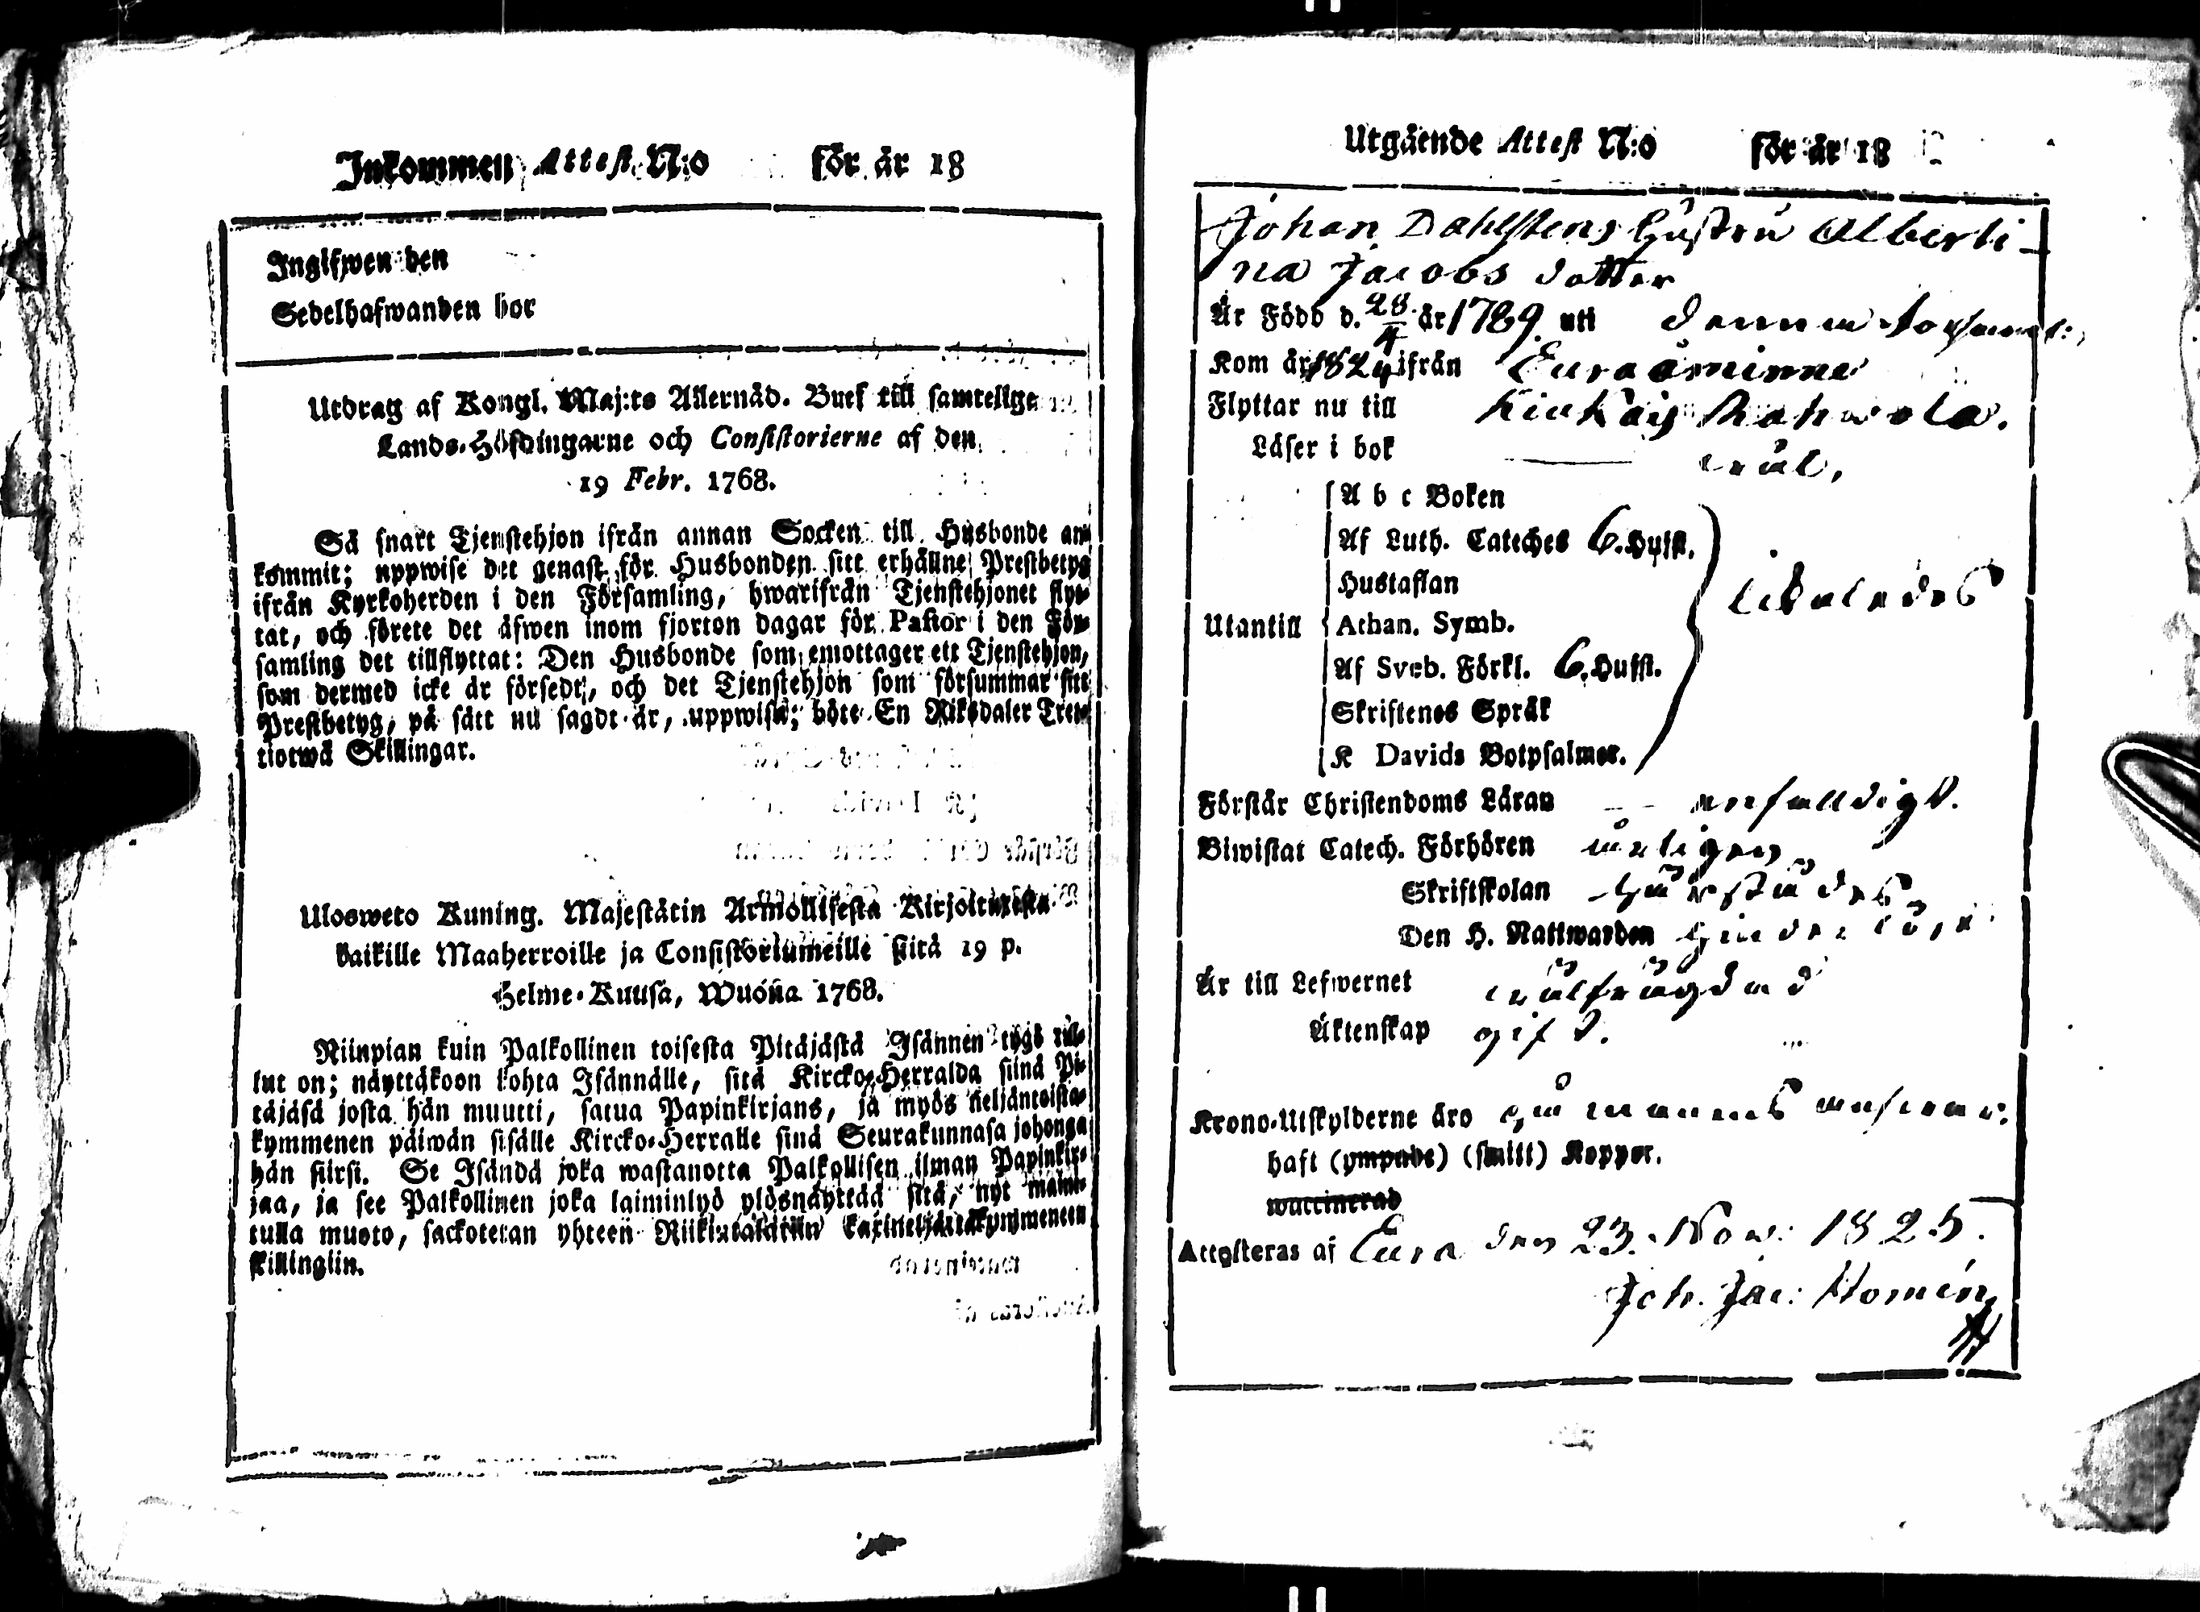 Inkommen Attest N:o för år 18
Ingifwen den
Sedelhafwanden bor
Utdrag af Kongl. Maj:ts Allernåd. Bref till samtellge
Lands-Höfdingarne och Consistorierne af den
19 Febr. 1768.
Så snart Tjenstehjon ifrån annan Socken till Husbonde an-
kommit; uppwise det genast för Husbonden sitt erhållne Prestbetyg
ifrån Kyrkoherden i den Församling, hwarifrån Tjenstehjonet flyt-
tat, och förete det äfwen inom fjorton dagar för Pastor i den För-
samling det tillflyttat: Den Husbonde som emottager ett Tjenstehjon,
som dermed icke är försedt, och det Tjenstehjon som försummar sitt
Prestbetyg, på sätt nu sagdt är, uppwisa; böte En Riksdaler Tret-
tiotwå Skillingar.
Ulosweto Kuning. Majestätin Armollisesta Kirjoituxesta
kaikille Maaherroille ja Consistoriumeille siitä 19 p.
Helme-Kuusa, Wuonna 1768.
Niinpian kuin Palkollinen toisesta Pitäjästä Isännen tygö tul-
lut on; näyttäkoon kohta Isännälle, sitä Kircko-Herralda siinä Pi-
täjäsä josta hän muutti, saatua Papinkirjans, ja myös neljäntoista-
kymmenen päiwän sisälle Kircko-Herralle siinä Seurakunnasa johonga
hän siirsi. Se Isändä joka wastanotta Palkollisen ilman Papinkir-
jaa, ja see Palkollinen joka laiminlyö ylösnäyttää sitä, nyt maini-
tulla muoto, sackotetan yhteen Riikintalariin kaxineljättäkymmeneen
skillingiin.
Utgående Attest N:o för år 18
Johan Dahlstens Hustru Alberti-
na Jacobs dotter
Är Född d. 28/4 år 1789. uti denna Församl:
Kom år 1824 ifrån Euraåminne
Flyttar nu till Kiukais Rahwola.
Läser i bok — wäl,
A b c Boken
Af Luth. Cateches 6. Hufst.
Hustaflan
Utantill Athan. Symb. likaledes
Af Sveb. Förkl. 6. Hufst.
Skriftenes Språk
K Davids Botpsalmer.
Förstår Christendoms Läran enfalldigt.
Biwistat Catech. Förhören årligen
Skriftskolan
Den H. Nattwarden
Är till Lefwernet wälfrägdad
Äktenskap gift.
Krono-Utskylderne äro på mannens answar.
haft (ympade) (smitt) Koppor.
waccinerad
Attesteras af Eura den 23. Nov: 1825.
Joh. Jac: Homén